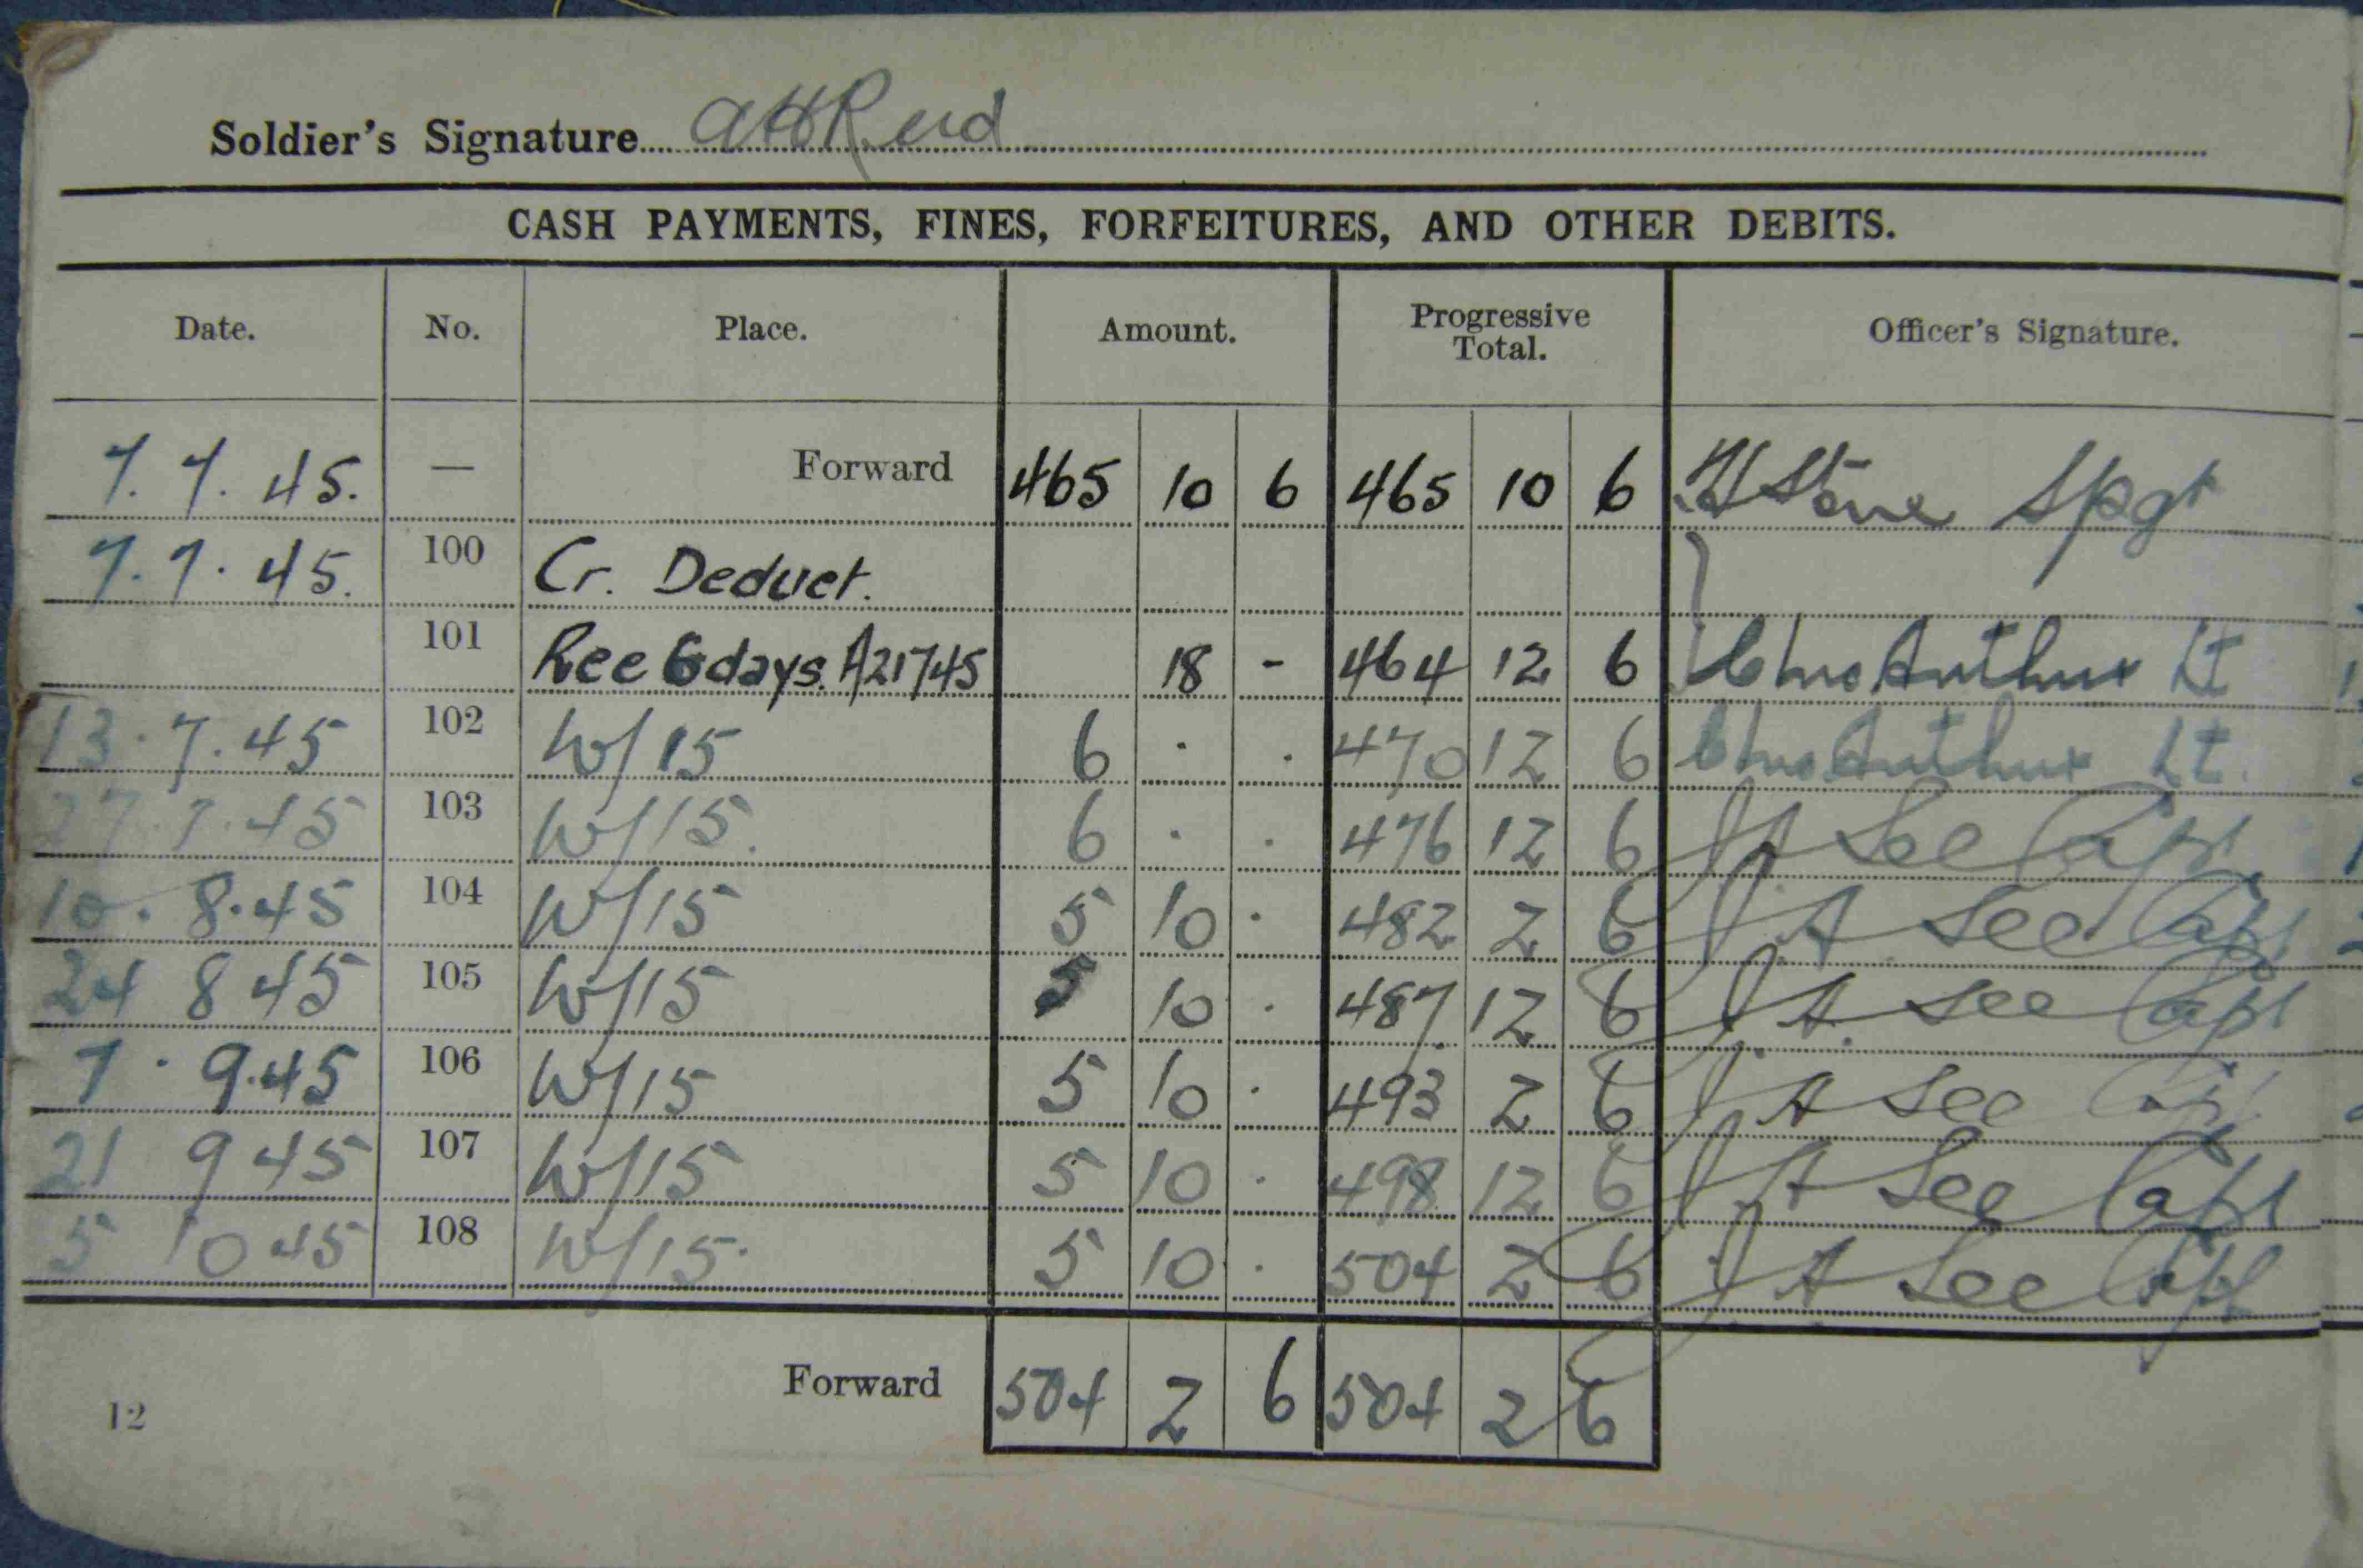 Soldier's Signature AHReid
CASH PAYMENTS, FINES, FORFEITURES, AND OTHER DEBITS.
Date. No. Place. Amount. Progressive Total. Officer's Signature.
7.7.45. — Forward 465 10 6 465 10 6 Stone Spgt
7.7.45. 100 Cr. Deduct.
101 Ree 6 days. A21745 18 - 464 12 6 McArthur Lt
13.7.45 102 W/15 6 . . 470 12 6 McArthur Lt.
27.7.45 103 W/15. 6 . . 476 12 6 J A See Capt
10.8.45 104 W/15 5 10 . 482 2 6 J A See Capt
24 8 45 105 W/15 5 10 . 487 12 6 J. A. See Capt
7.9.45 106 W/15 5 10 . 493 2 6 J A See Capt
21 9 45 107 W/15 5 10 . 498 12 6 J A See Capt
5 10 45 108 W/15. 5 10 . 504 2 6 J A See Capt
Forward 504 2 6 504 2 6
12